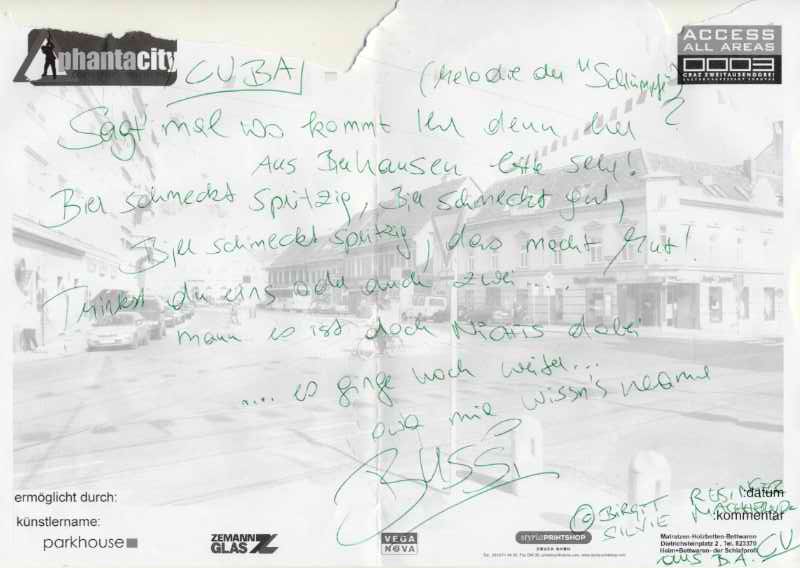 phantacity
ACCESS
ALL AREAS
0003
GRAZ ZWEITAUSENDDREI
CUBA
(Melodie der "Schlümpfe")
Sagt mal wo kommt Ihr denn her?
Aus Bierhausen bitte sehr!
Bier schmeckt spritzig, Bier schmeckt gut,
Bier schmeckt spritzig, das macht Mut!
Trinkst du eins oder auch zwei ...
mann es ist doch Nichts dabei
.... es ginge noch weiter...
owa mir wissn's neamme
BUSSi
ermöglicht durch:
künstlername:
parkhouse
ZEMANN
GLAS
VEGA
NOVA
styriaPRINTSHOP
:datum
:kommentar
© BIRGIT REISINGER
SILVIE
Matratzen-Holzbetten-Bettwaren
Dietrichsteinplatz 2 , Tel. 823370
Heim+Bettwaren- der Schlafprofi
aus BA. CU